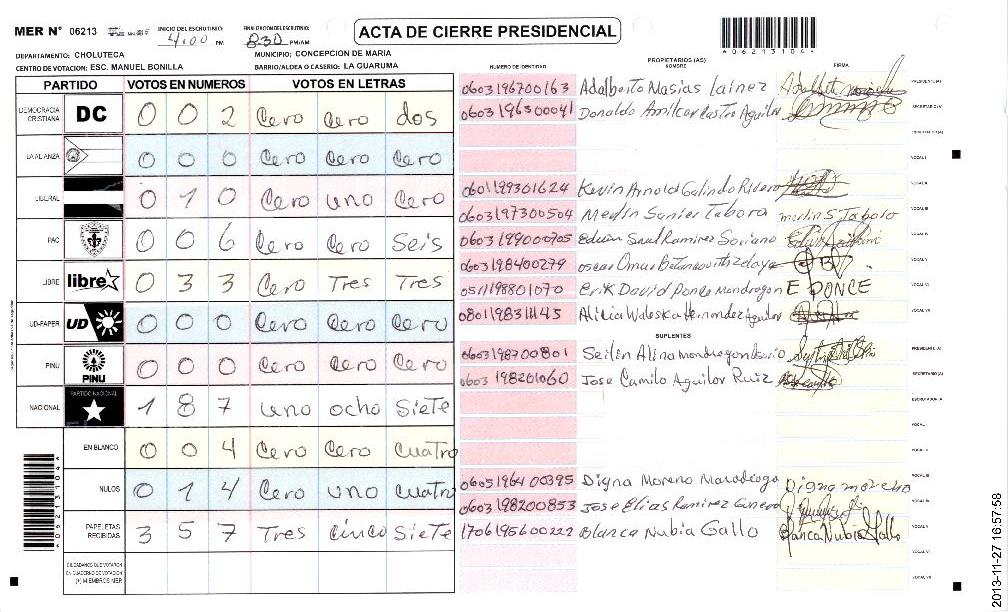 MER N° 06213 INICIO DEL ESCRUTINIO: 4:00 PM FINALIZACION DEL ESCRUTINIO: 8:30 PM/AM ACTA DE CIERRE PRESIDENCIAL
*06213104*
DEPARTAMENTO: CHOLUTECA MUNICIPIO: CONCEPCION DE MARIA
CENTRO DE VOTACION: ESC. MANUEL BONILLA BARRIO/ALDEA O CASERIO: LA GUARUMA
PARTIDO VOTOS EN NUMEROS VOTOS EN LETRAS
DEMOCRACIA CRISTIANA DC 0 0 2 Cero Cero dos
LA ALIANZA 0 0 0 Cero Cero Cero
LIBERAL 0 1 0 Cero uno Cero
PAC 0 0 6 Cero Cero Seis
LIBRE libre 0 3 3 Cero Tres Tres
UD-FAPER UD 0 0 0 Cero Cero Cero
PINU PINU 0 0 0 Cero Cero Cero
NACIONAL PARTIDO NACIONAL 1 8 7 uno ocho Siete
EN BLANCO 0 0 4 Cero Cero cuatro
NULOS 0 1 4 Cero uno cuatro
PAPELETAS RECIBIDAS 3 5 7 Tres cinco Siete
CIUDADANOS QUE VOTARON
EN CUADERNO DE VOTACION
(+) MIEMBROS MER
*06213104*
PROPIETARIOS (AS)
NUMERO DE IDENTIDAD NOMBRE FIRMA
0603196700163 Adalberto Masias Lainez PRESIDENTE (A)
0603196300041 Donaldo Amilcar Castro Aguilar SECRETARIO (A)
ESCRUTADOR (A)
VOCAL I
0601199301624 Kevin Arnold Galindo Rivera VOCAL II
0603197300504 Merlin Sonier Tabora merlin S Tabora VOCAL III
0603199000705 Edwin Saul Ramirez Soriano VOCAL IV
0603198400279 oscar Omar Betancourth zelaya VOCAL V
0511198801070 Erik David Ponce Mondragon E PONCE VOCAL VI
Alicia Waleska Hernandez Aguilar VOCAL VII
SUPLENTES
0603198700801 Seilin Alina mondragon PRESIDENTE (A)
0603 198201060 Jose Camilo Aguilar Ruiz SECRETARIO (A)
ESCRUTADOR (A)
VOCAL I
VOCAL II
0605196400395 Digna Moreno Digna moreno VOCAL III
0603198200853 Jose Elias Ramirez VOCAL IV
1706195600222 Blanca Nubia Gallo Blanca Nubia Gallo VOCAL V
VOCAL VI
VOCAL VII
2013-11-27 16:57:58